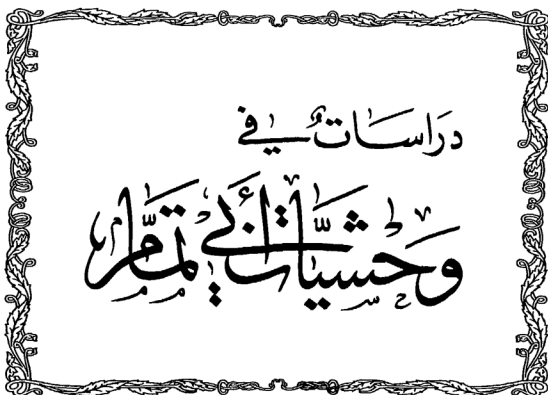 دَرَاسَاتٌ في
وَحْشيَّات أَبي تمَّام